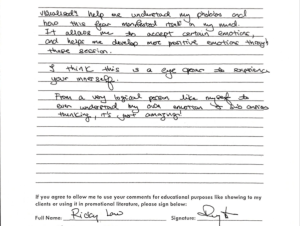 visualised? help me understand my phobias and
how this fear manifested itself in my mind.
It allows me to accept certain emotions,
and helps me develop more positive emotions through
these session.
I think this is a eye opener to experience
your innerself.
From a very logical person like myself to
even understand my own emotion & sub conscious
thinking, it's just amazing!
If you agree to allow me to use your comments for educational purposes like showing to my
clients or using it in promotional literature, please sign below:
Full Name: Ricky Low Signature: